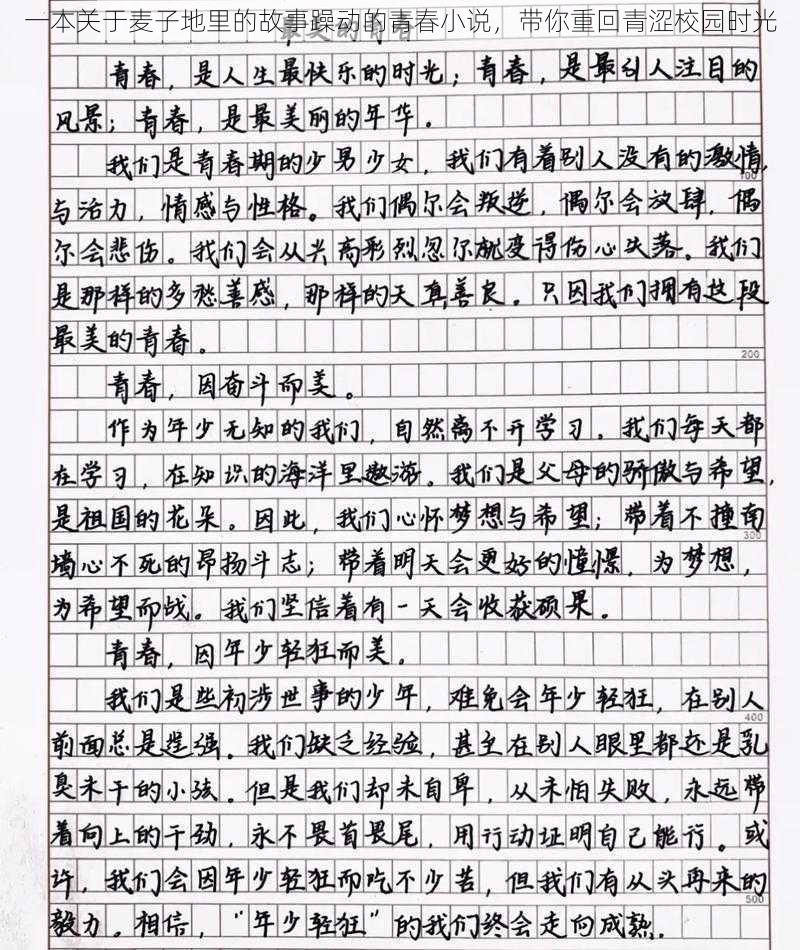 一本关于麦子地里的故事躁动的青春小说，带你重回青涩校园时光
最美的青春
青春，是人生最快乐的时光；青春，是最引人注目的
风景；青春，是最美丽的年华。
我们是青春期的少男少女，我们有着别人没有的激情，
100
与活力，情感与性格。我们偶尔会叛逆，偶尔会放肆，偶
尔会悲伤。我们会从兴高彩烈忽尔就变得伤心失落。我们
是那样的多愁善感，那样的天真善良。只因我们拥有这段
最美的青春。
200
青春，因奋斗而美。
作为年少无知的我们，自然离不开学习。我们每天都
在学习，在知识的海洋里遨游。我们是父母的骄傲与希望，
是祖国的花朵。因此，我们心怀梦想与希望；带着不撞南
300
墙心不死的昂扬斗志；带着明天会更好的憧憬，为梦想，
为希望而战。我们坚信着有一天会收获硕果。
青春，因年少轻狂而美。
我们是些初涉世事的少年，难免会年少轻狂，在别人
400
前面总是逞强。我们缺乏经验，甚至在别人眼里都还是乳
臭未干的小孩。但是我们却未自卑，从未怕失败，永远带
着向上的干劲，永不畏首畏尾，用行动证明自己能行。或
许，我们会因年少轻狂而吃不少苦，但我们有从头再来的
500
毅力。相信，“年少轻狂”的我们终会走向成熟。